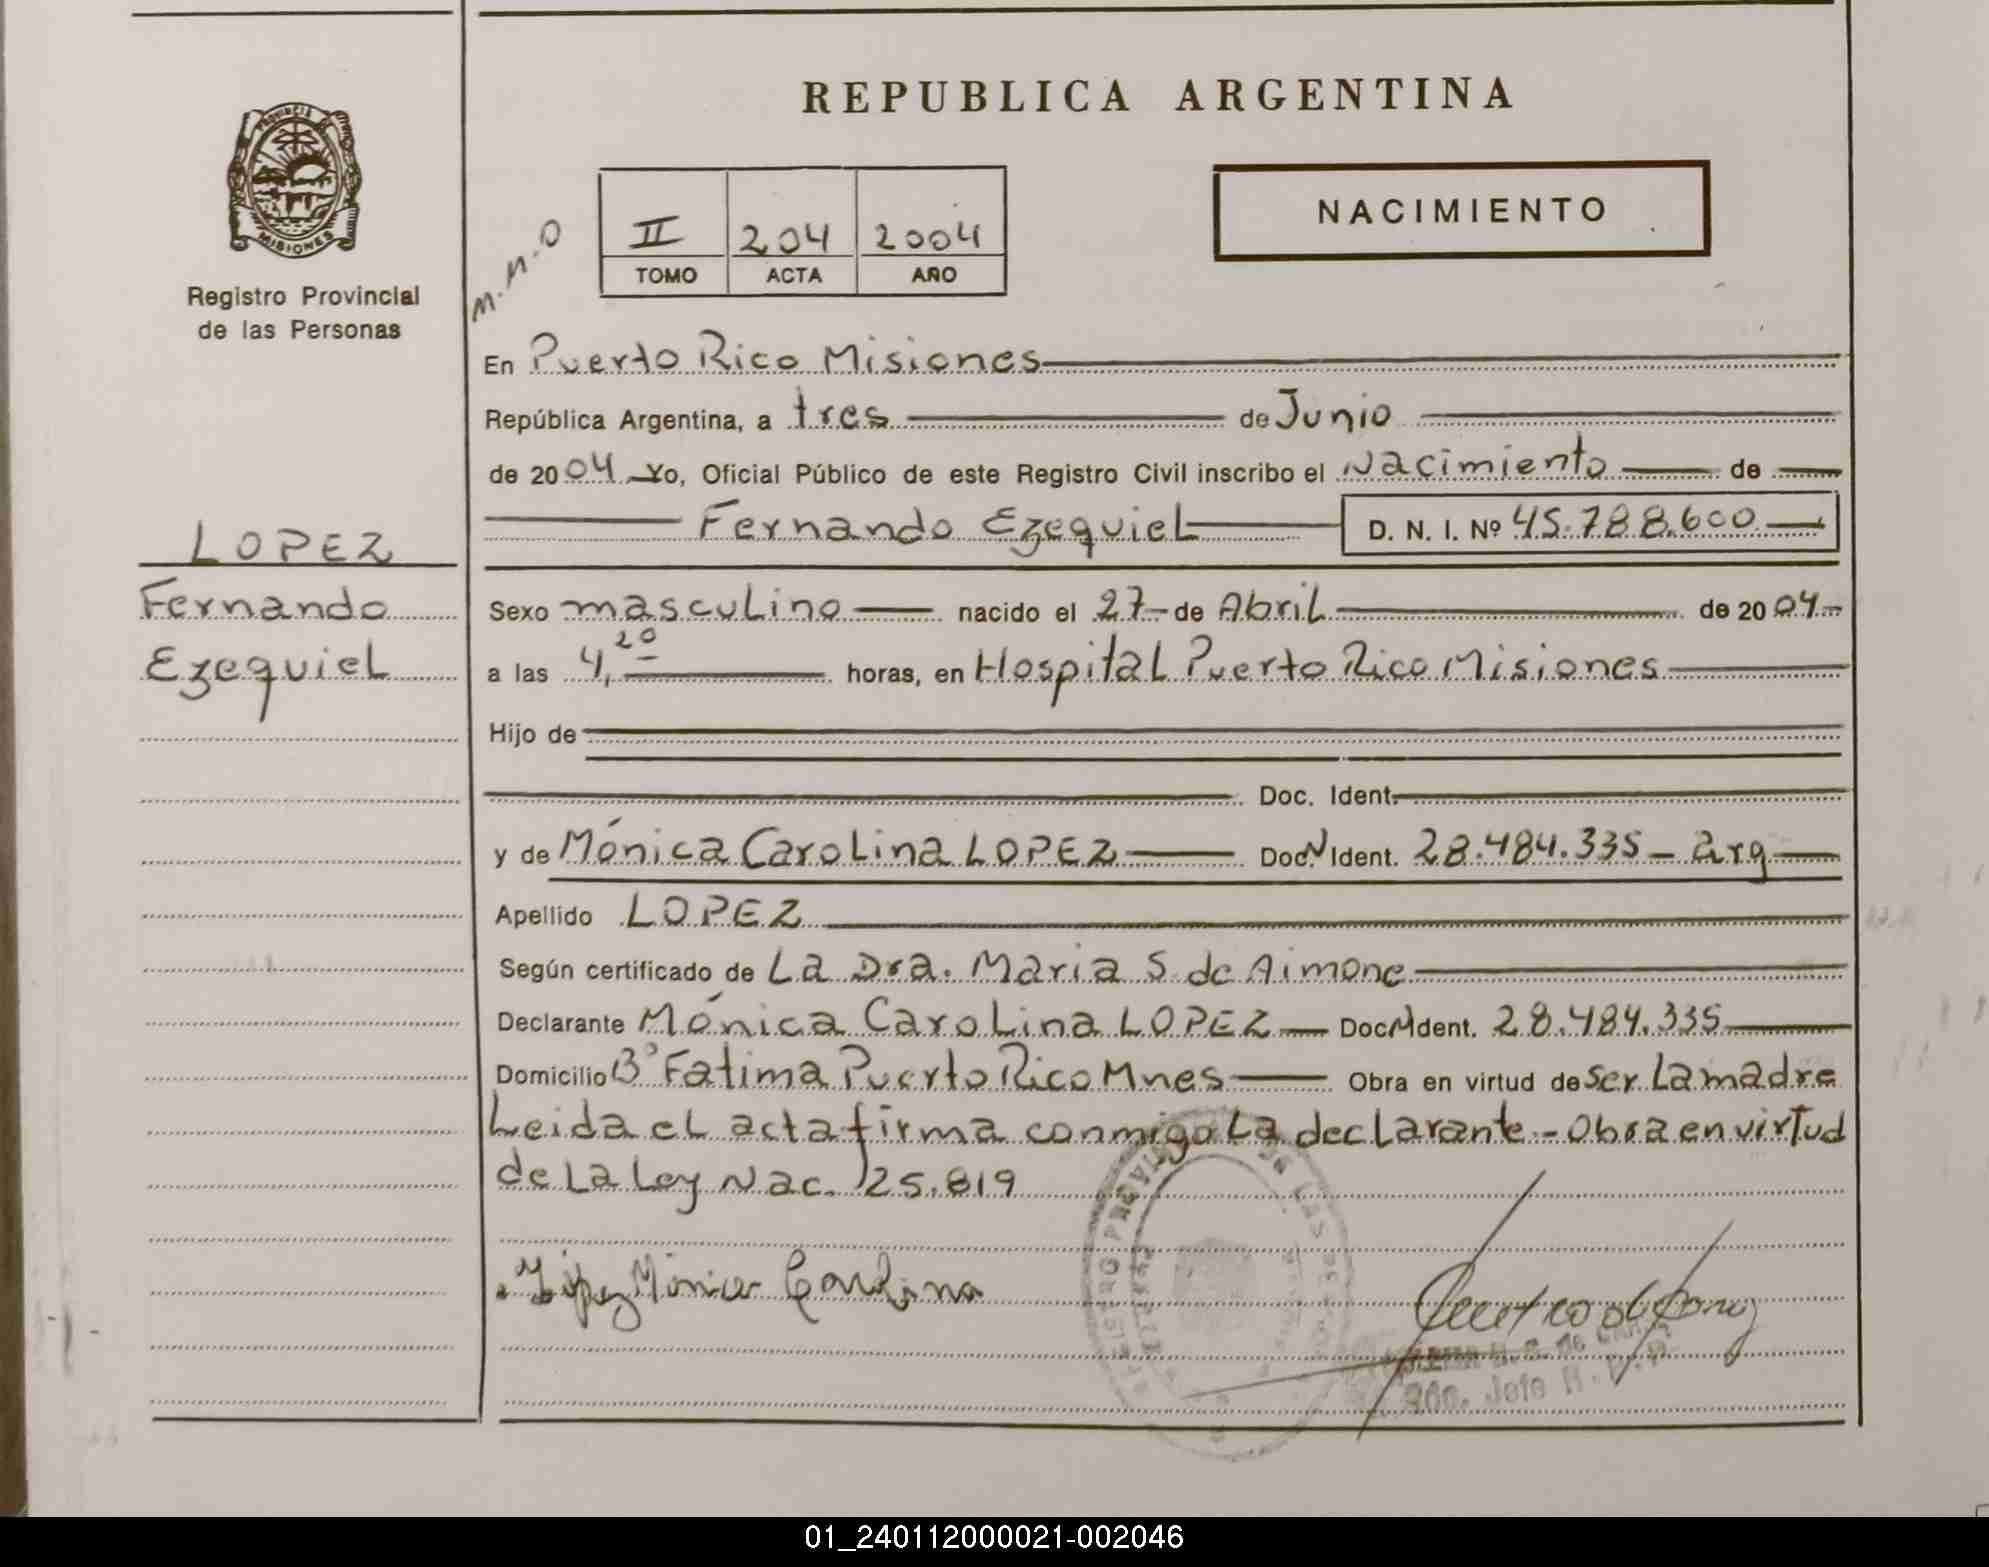 REPUBLICA ARGENTINA
NACIMIENTO
PROVINCIA DE
MISIONES
Registro Provincial
de las Personas
M.M.O
II 204 2004
TOMO ACTA AÑO
En Puerto Rico Misiones
República Argentina, a tres de Junio
de 2004 Yo, Oficial Público de este Registro Civil inscribo el Nacimiento de
Fernando Ezequiel D. N. I. Nº 45.788.600
LOPEZ
Fernando
Ezequiel
Sexo masculino nacido el 27 de Abril de 2004
a las 4,20 horas, en Hospital Puerto Rico Misiones
Hijo de
Doc. Ident.
y de Mónica Carolina LOPEZ Doc. N Ident. 28.484.335 - Arg
Apellido LOPEZ
Según certificado de La Dra. Maria S. de Aimone
Declarante Mónica Carolina LOPEZ Doc. N Ident. 28.484.335
Domicilio Bº Fatima Puerto Rico Mnes Obra en virtud de ser La madre
Leida el acta firma conmigo La declarante - Obra en virtud
de La Ley Nac. 25.819
López Mónica Carolina
REGISTRO PROVINCIAL DE LAS PERSONAS
Jefe R.P.P
01_240112000021-002046